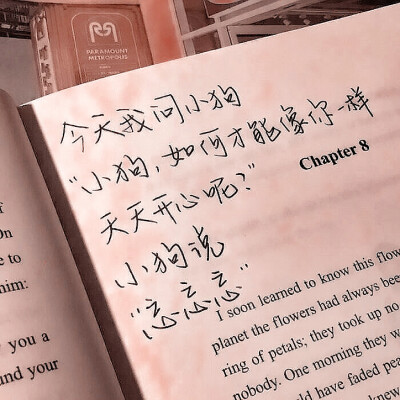 PARAMOUNT
METROPOLIS
今天我问小狗
"小狗,如何才能像你一样
天天开心呢?"
小狗说
"忘忘忘"
On
e to
him:
you a
and your
Chapter 8
I soon learned to know this flow
planet the flowers had always bee
ring of petals; they took up no
nobody. One morning they w
ld have faded peac
knew